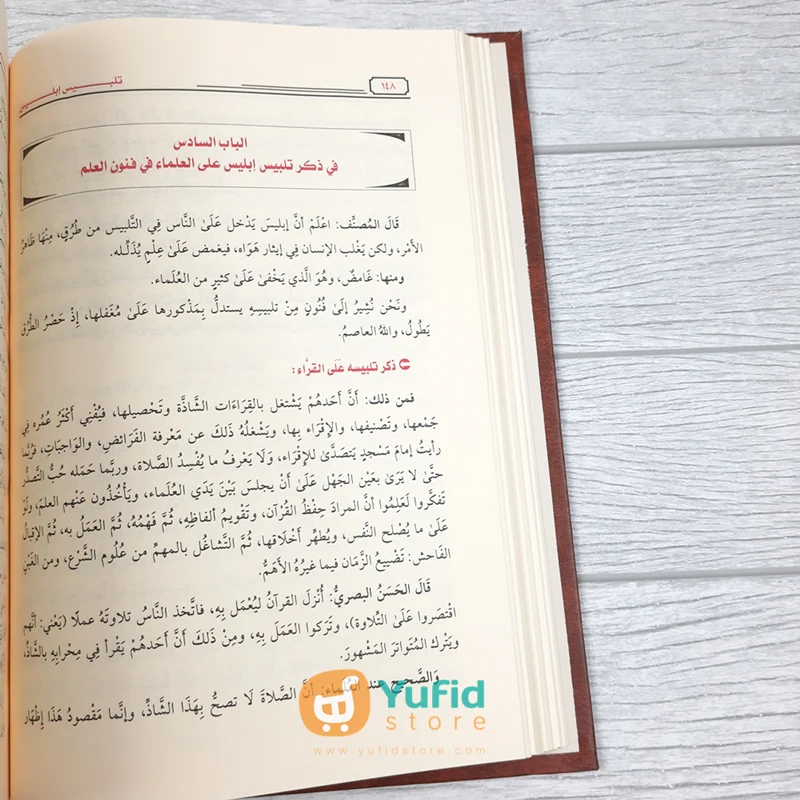 ١٤٨
تلبيس إبليس
الباب السادس
في ذكر تلبيس إبليس على العلماء في فنون العلم
قَالَ المُصنِّف: اعْلَمْ أنَّ إبليسَ يَدْخل عَلَىٰ النَّاس فِي التَّلبيس من طُرُقٍ، مِنْهَا ظَاهرُ
الأَمْر، ولكن يَغْلب الإنسان فِي إيثار هَوَاه، فيغمض عَلَىٰ عِلْمٍ يُذَلِّله.
ومنها: غَامضٌ، وهُوَ الَّذي يَخْفىٰ عَلَىٰ كثيرٍ من العُلَماء.
ونَحْن نُشِيرُ إلَىٰ فُنُونٍ مِنْ تلبيسِهِ يستدلُّ بِمَذْكورها عَلَىٰ مُغَفَلها، إذْ حَصْرُ الطُّرُق
يَطُولُ، واللهُ العاصمُ.
ذكر تلبيسه عَلَى القرَّاء:
فمن ذلك: أَنَّ أَحَدهُمْ يَشْتغل بالقِرَاءَات الشَّاذَّة وتَحْصيلها، فيُفْنِي أَكْثَرَ عُمُره فِي
جَمْعها، وتَصْنيفها، والإقْرَاء بِها، ويَشْغلُهُ ذَلكَ عن مَعْرفة الفَرَائض، والوَاجبَات، فرُبَّما
رأيتُ إمَامَ مَسْجدٍ يَتصَدَّىٰ للإقْرَاء، وَلَا يَعْرفُ ما يُفْسِدُ الصَّلاة، وربَّما حَمَله حُبُّ التصدُّر
حتَّىٰ لا يَرَىٰ بعَيْن الجَهْل عَلَىٰ أَنْ يجلسَ بَيْنَ يَدَي العُلَماء، ويَأْخُذُون عَنْهم العلمَ، ولَوْ
تَفكَّروا لَعَلِمُوا أنَّ المرادَ حِفْظُ القُرْآن، وتَقْويمُ ألفاظِهِ، ثُمَّ فَهْمُهُ، ثُمَّ العَمَلُ به، ثُمَّ الإقبالُ
عَلَىٰ ما يُصْلح النَّفس، ويُطهِّر أَخْلَاقها، ثُمَّ التَّشاغُل بالمهمِّ من عُلُوم الشَّرْع، ومن الغَبْنِ
الفَاحش: تَضْييعُ الزَّمَان فيما غَيرُهُ الأَهَمُّ.
قَالَ الحَسَنُ البصريُّ: أُنْزلَ القرآنُ ليُعْمَلَ بِهِ، فاتَّخذ النَّاسُ تلاوتَهُ عملًا (يَعْنِي: أنَّهم
اقْتصَروا عَلَىٰ التِّلاوة)، وتَرَكوا العَمَلَ بِهِ، ومِنْ ذَلكَ أَنَّ أَحَدهُمْ يَقْرأ فِي مِحْرابِهِ بالشَّاذِّ،
ويَتْرك المُتَواترَ المَشْهورَ.
والصَّحيح عند العُلماء: أنَّ الصَّلاةَ لَا تصحُّ بِهَذَا الشَّاذِّ، وإنَّما مَقْصودُ هَذَا إِظْهَار
Yufid
store
www.yufidstore.com